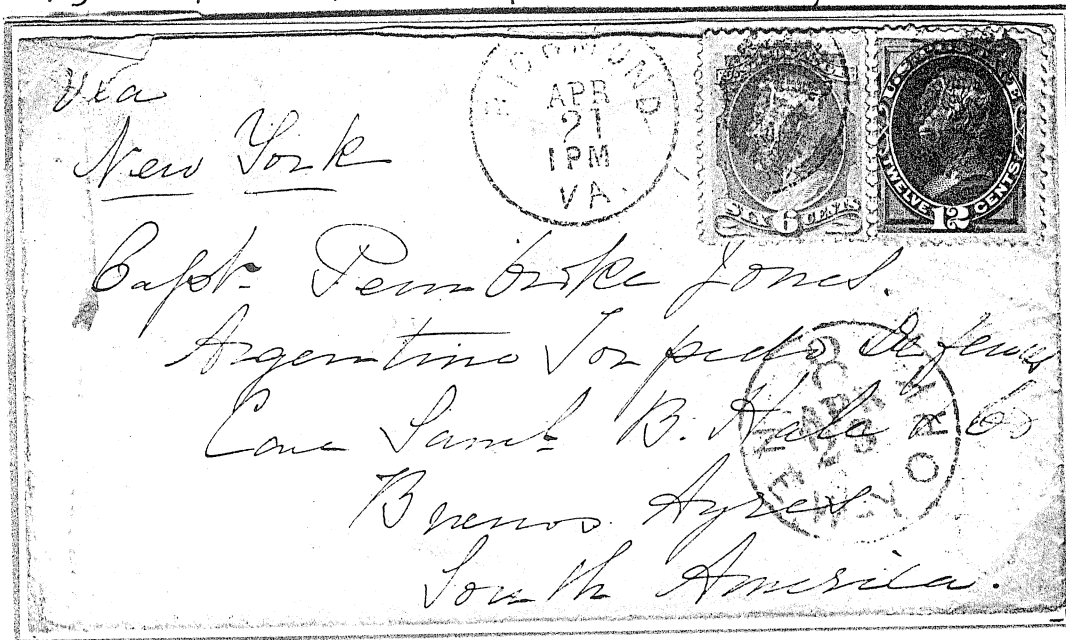 Via
New York
RICHMOND
APR
21
1 PM
VA.
U.S. POSTAGE
SIX 6 CENTS
TWELVE 12 CENTS
Capt. Pembroke Jones.
Argentine Torpedo Defences
Care Saml. B. Hale & Co
Buenos Ayres
South America.
NEW YORK
APR